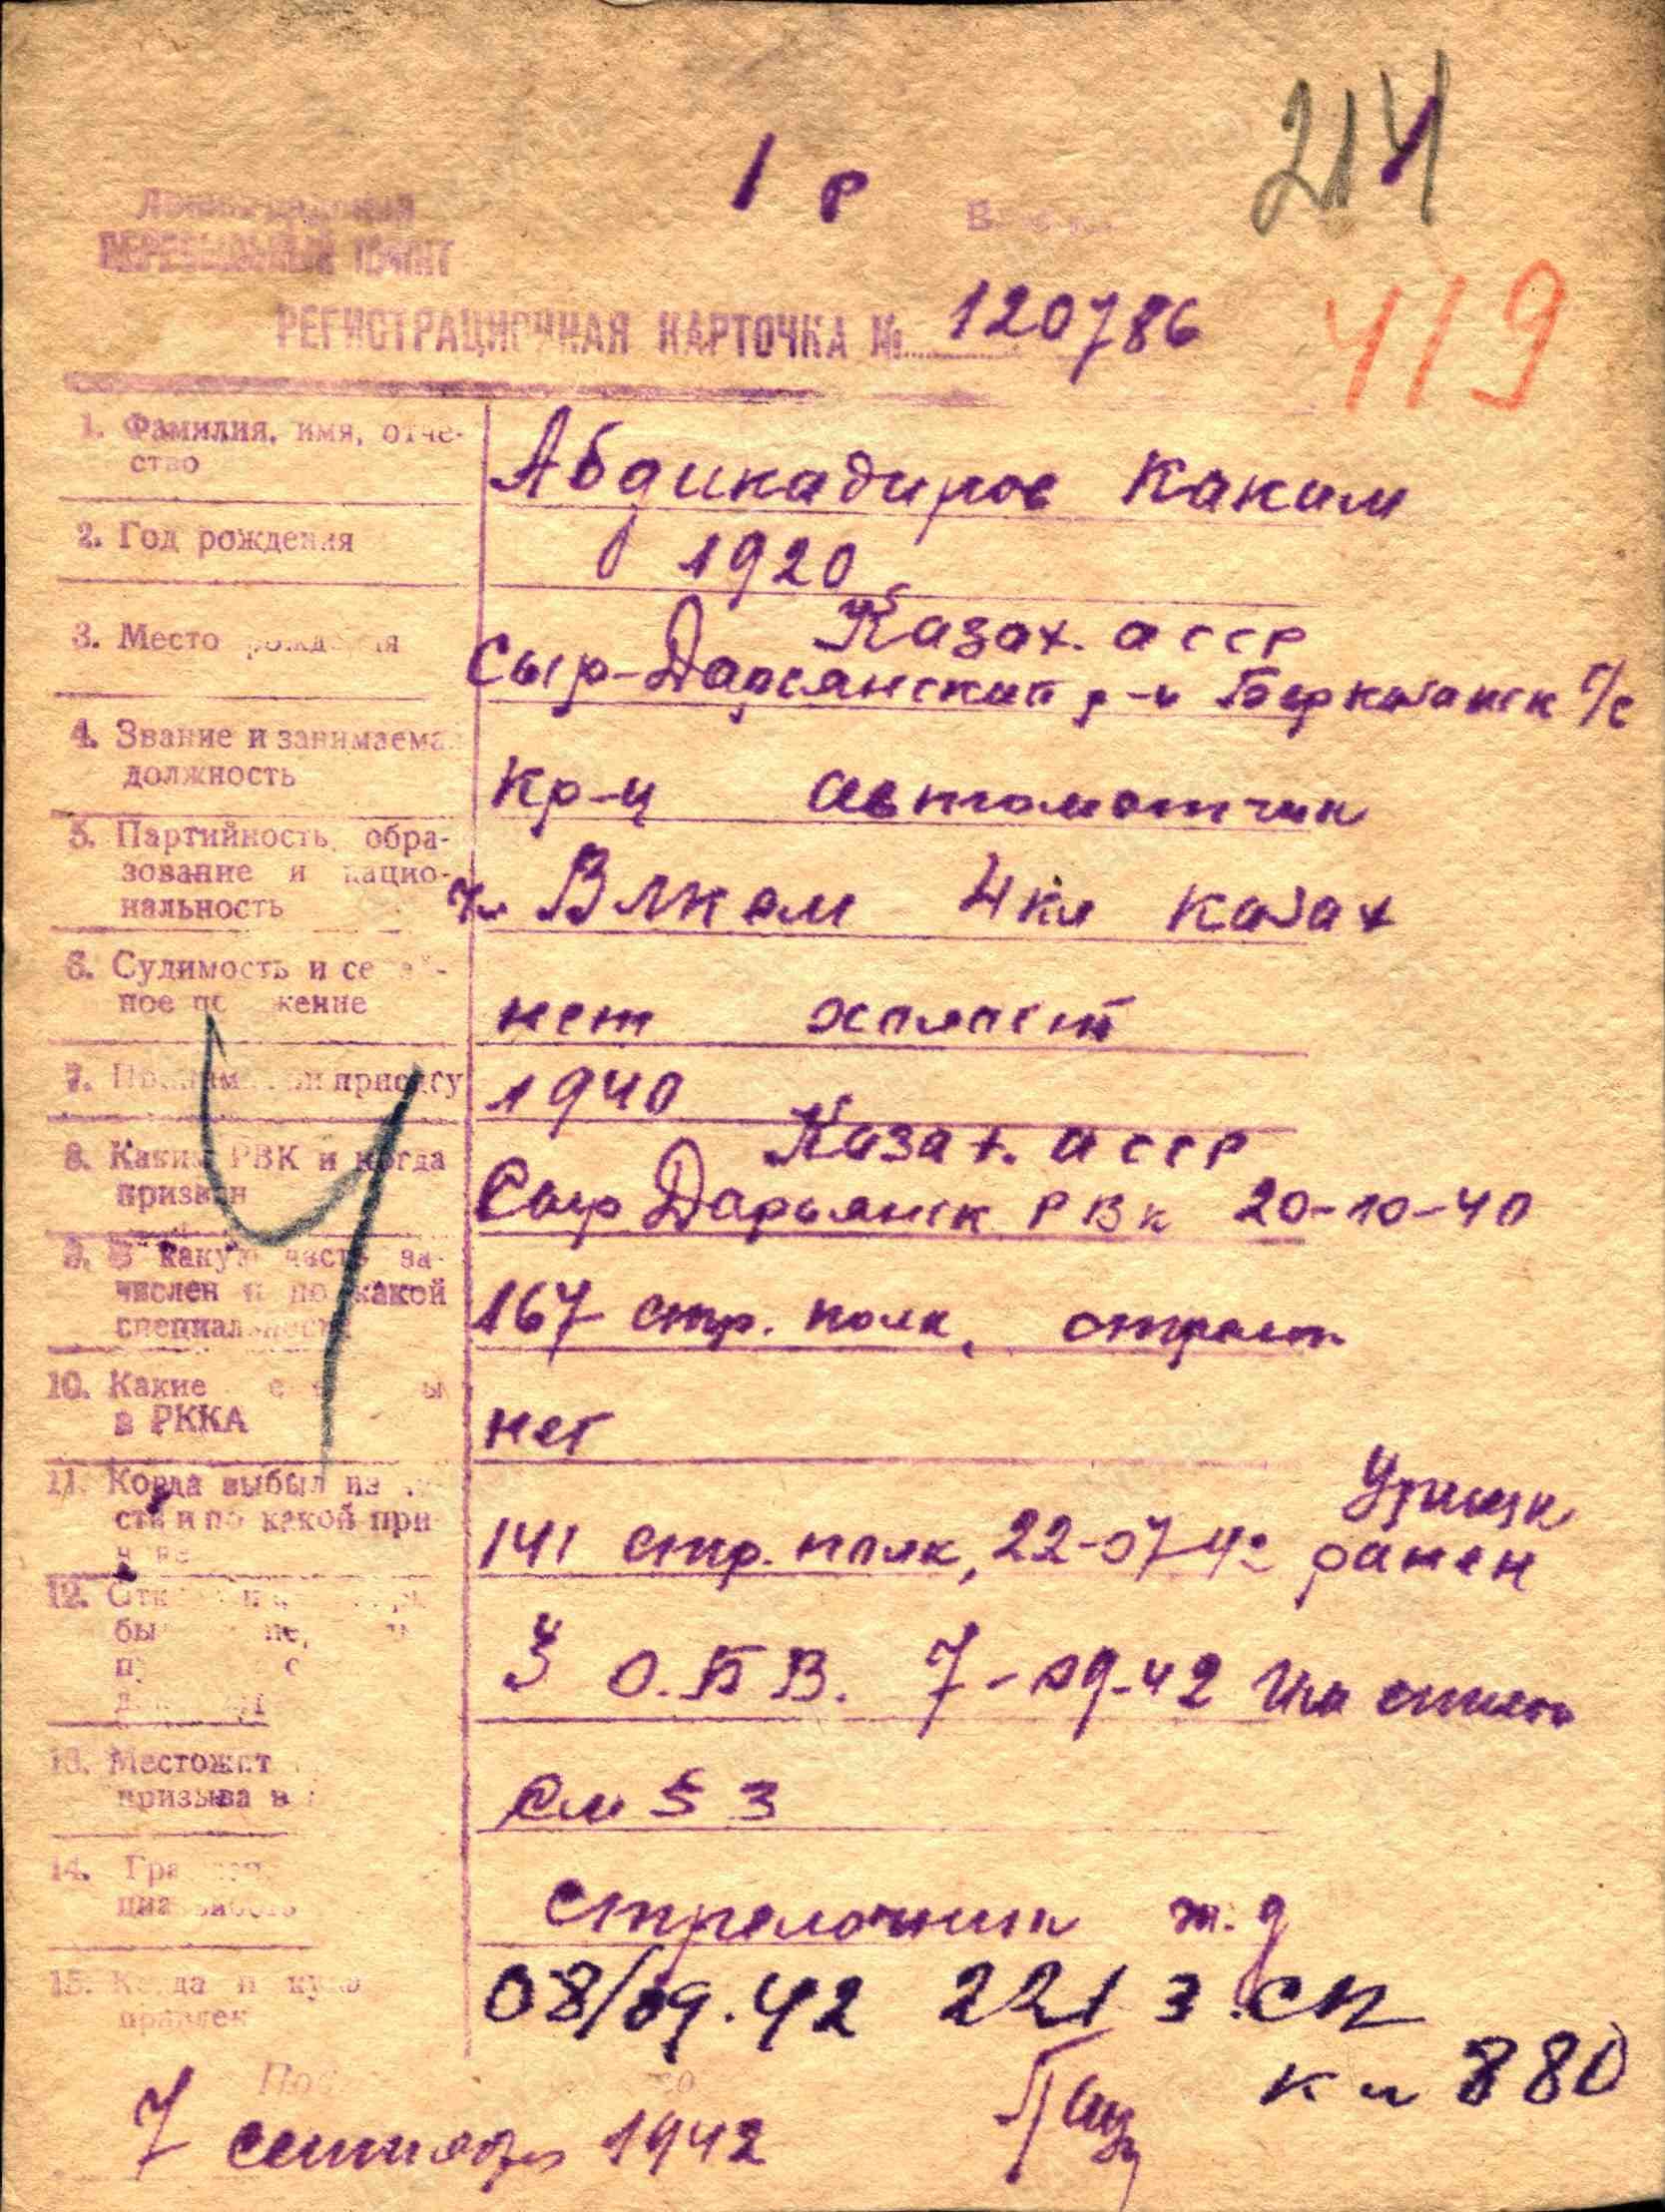 214
1 р
Ленинградский
ПЕРЕСЫЛЬНЫЙ ПУНКТ
РЕГИСТРАЦИОННАЯ КАРТОЧКА № 120786
419
1. Фамилия, имя, отче-
ство
Абдикадиров Каким
2. Год рождения
1920
3. Место рождения
Казах. АССР
Сыр-Дарьянский р-н
4. Звание и занимаемая
должность
Кр-ц автоматчик
5. Партийность, обра-
зование и нацио-
нальность
Чл ВЛКСМ 4 кл казах
6. Судимость и семей-
ное положение
нет холост
7. присягу
1940
8. Каким РВК и когда
призван
Казах. АССР
Сыр Дарьянск РВК 20-10-40
9. В какую часть за-
числен и по какой
специальности
167 стр. полк,
10. Какие
в РККА
нет
11. Когда выбыл из
сти и по какой при
Урицк
141 стр. полк, 22-07-42 ранен
12.
3 О.Б.В. 7-09-42
13. Местожит
призыва в
См § 3
14.
стрелочник ж.д
15. Когда и куда
правлен
08/09.42 221 з.сп
к-н 880
7 сентября 1942